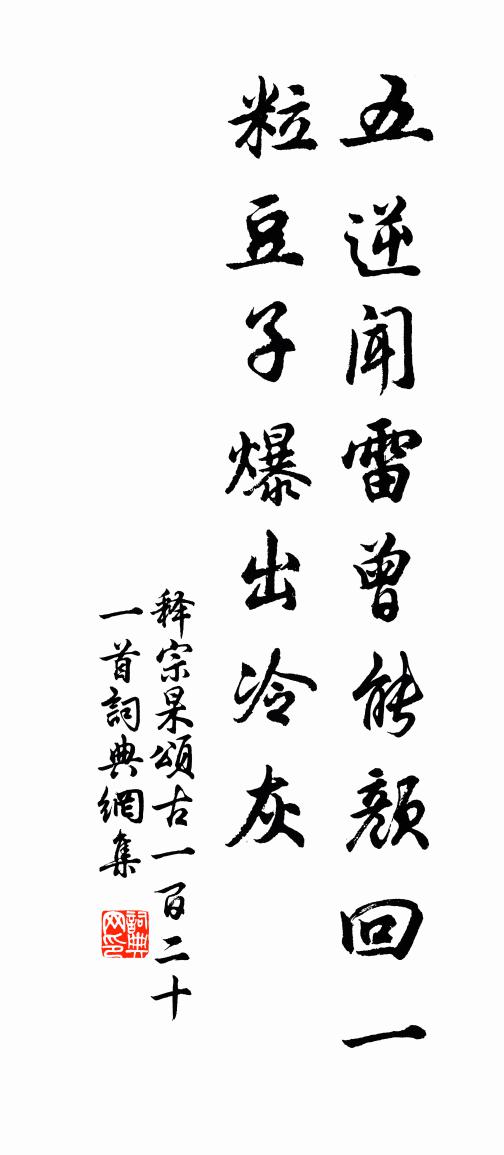 五逆闻雷曾能颜回一
粒豆子爆出冷灰
释宗杲颂古一百二十
一首詞典網集
詞典网印